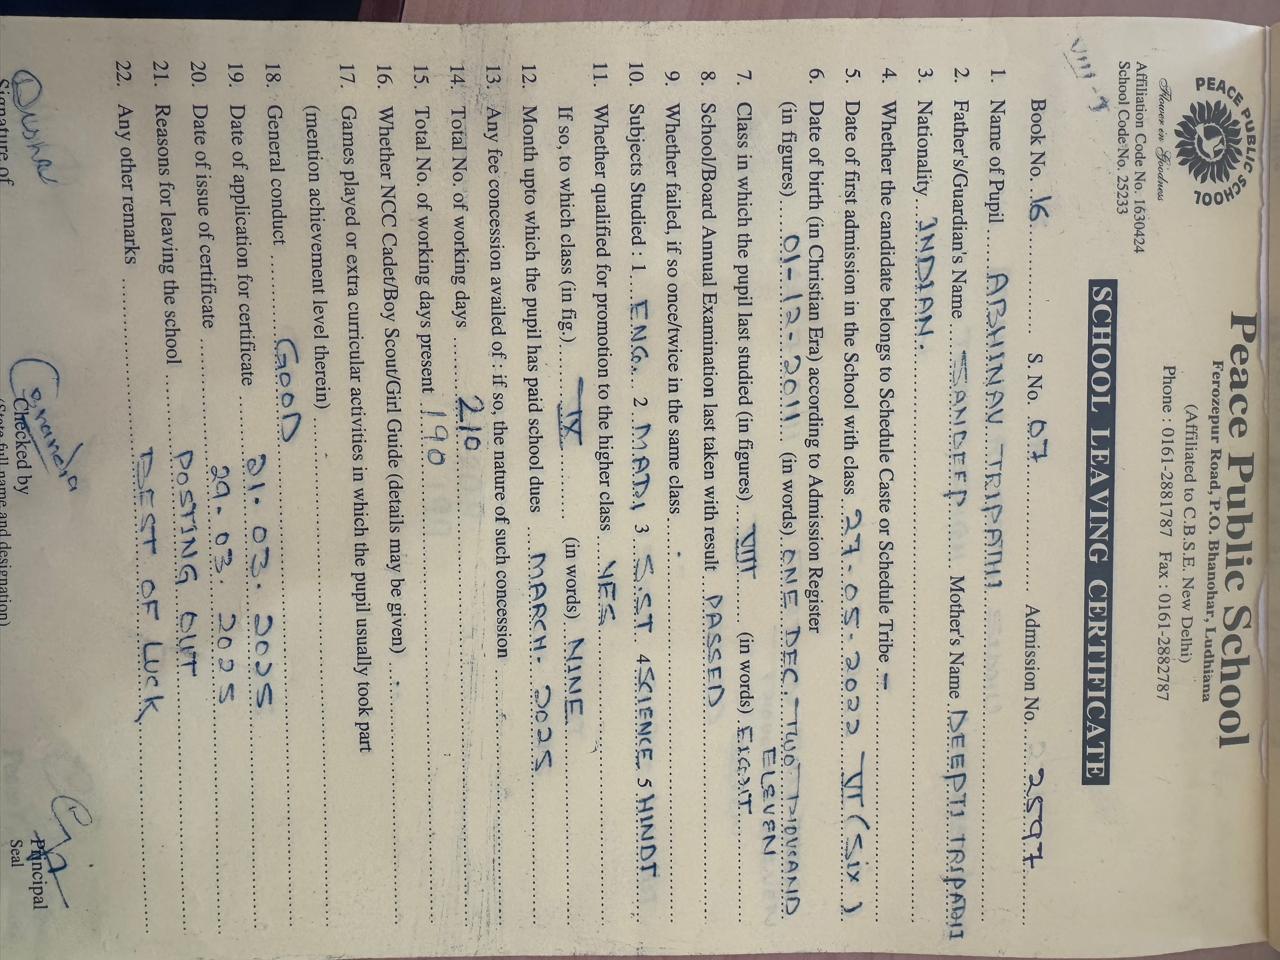 PEACE PUBLIC SCHOOL
Flower in Goodness
Affiliation Code No. 1630424
School Code No. 25233
Peace Public School
Ferozepur Road, P.O. Bhanohar, Ludhiana
(Affiliated to C.B.S.E. New Delhi)
Phone : 0161-2881787 Fax : 0161-2882787
SCHOOL LEAVING CERTIFICATE
Book No. 16 S. No. 07 Admission No. 2597
1. Name of Pupil ABHINAV TRIPATHI
2. Father's/Guardian's Name SANDEEP Mother's Name DEEPTI TRIPATHI
3. Nationality INDIAN.
4. Whether the candidate belongs to Schedule Caste or Schedule Tribe -
5. Date of first admission in the School with class 27-05-2022 VI (Six)
6. Date of birth (in Christian Era) according to Admission Register
(in figures) 01-12-2011 (in words) ONE DEC. TWO THOUSAND
ELEVEN
7. Class in which the pupil last studied (in figures) VIII (in words) EIGHT
8. School/Board Annual Examination last taken with result PASSED
9. Whether failed, if so once/twice in the same class
10. Subjects Studied : 1. ENG. 2. MATH 3 S.ST. 4 SCIENCE 5 HINDI
11. Whether qualified for promotion to the higher class YES
If so, to which class (in fig.) IX (in words) NINE
12. Month upto which the pupil has paid school dues MARCH. 2025
13. Any fee concession availed of : if so, the nature of such concession
14. Total No. of working days 210
15. Total No. of working days present 190
16. Whether NCC Cadet/Boy Scout/Girl Guide (details may be given)
17. Games played or extra curricular activities in which the pupil usually took part
(mention achievement level therein)
18. General conduct GOOD
19. Date of application for certificate 21.03.2025
20. Date of issue of certificate 29.03.2025
21. Reasons for leaving the school POSTING OUT
22. Any other remarks BEST OF LUCK
Signature of Checked by Principal
(State full name and designation) Seal